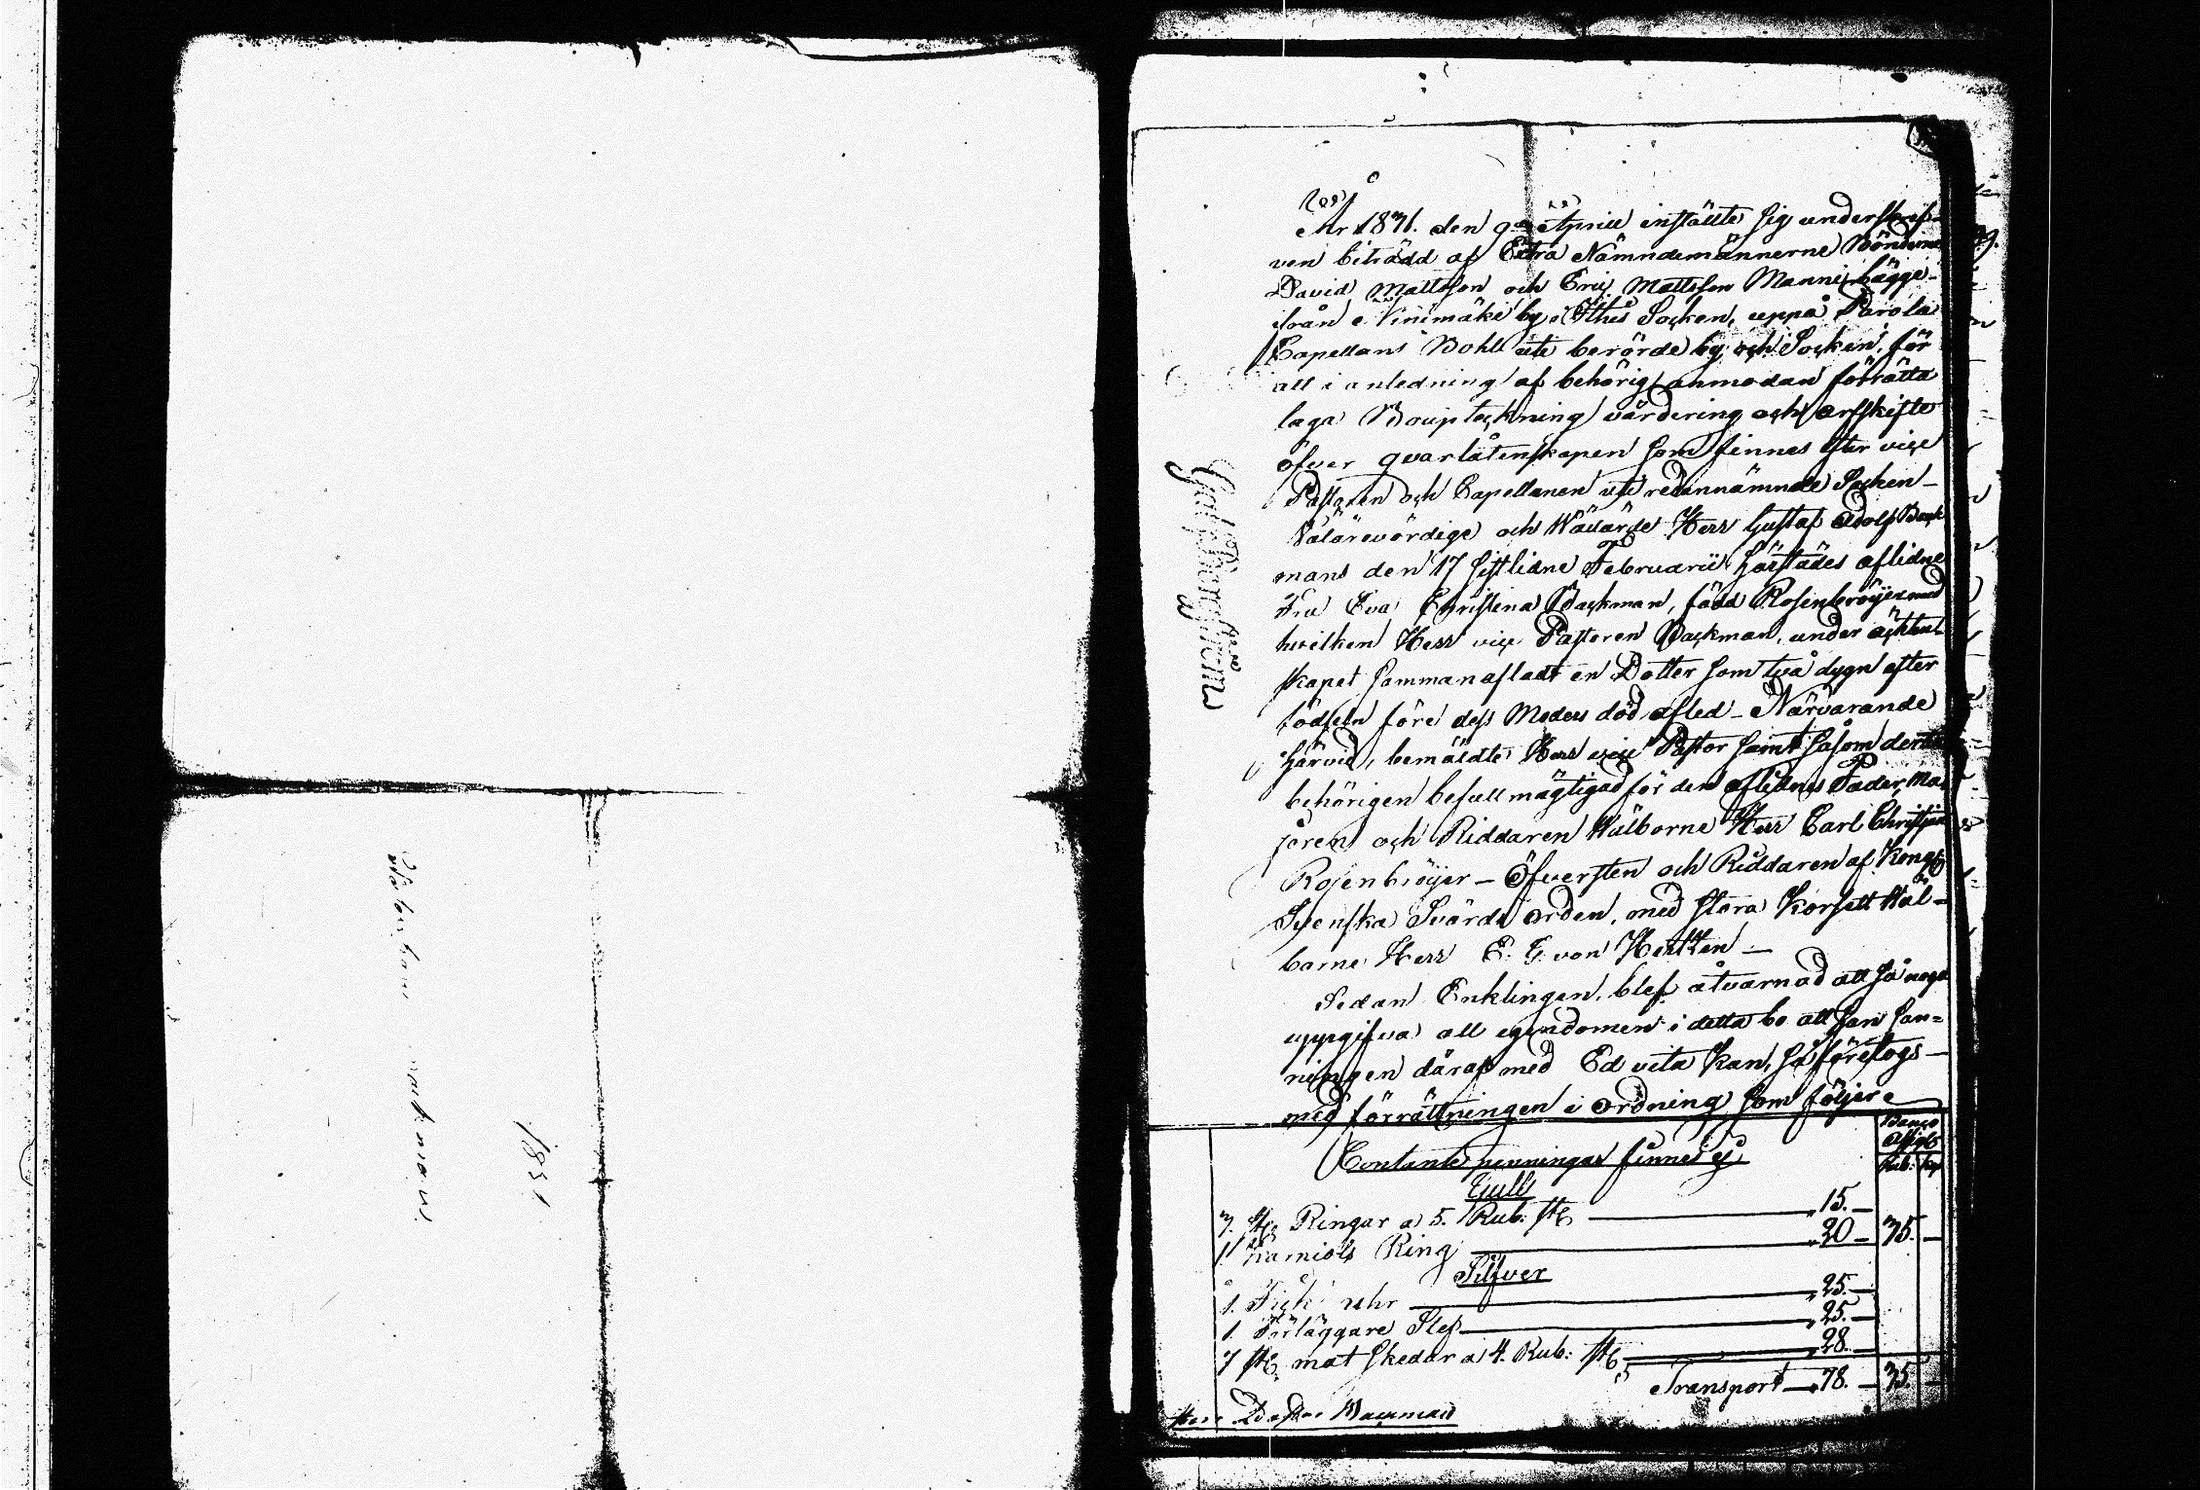 År 1831. den 9de Aprill instälte sig underskrif-
ven biträdd af Extra Nämndemännerne Bönderne
David Mattsson och Eric Mattsson Manni, bägge
från Vinimäki by i Ithis Socken, uppå Parola
Capellans Bohl uti berörde by och Socken, för
att i anledning af behörig anmodan förrätta
laga Bouptekning värdering och arfskifte
öfver qvarlåtenskapen som finnes efter vice
Pastoren och Capellanen uti redannämnde Socken
Välärevördige och Wällärde Herr Gustaf Adolf Back
mans den 17 sistlidne Februarii härstädes aflidne
Fru Eva Christina Backman, född Rosenbröijer med
hvilken Herr vice Pastoren Backman, under äckten-
skapet sammanaflat en Dotter som två dygn efter
födseln före dess Moders död afled - Närvarande
härvid, bemäldte Herr vice Pastor samt såsom dertill
behörigen befullmägtigad för den aflidnes Fader, Ma
joren och Riddaren Wälborne Herr Carl Christian
Rosenbröijer - Öfversten och Riddaren af Kongl
Svenska Svärds orden, med stora Korsett Wäl-
borne Herr C. G. von Hertten
Sedan Enklingen, blef åtvarnad att så noga
uppgifva all egendomen i detta bo att han san-
ningen däraf med Ed vita kan, så företogs
med förrättningen i ordning som följer
Banco
Assigt
Rub: Kop
Contante penningar finnes ej
Gull
3. st. Ringar a 5. Rub: st. 15. -
1. Karniols Ring 20 - 35. -
Silfver
1. Fick uhr 25. -
1. Förläggare Slef 25. -
7 st. mat skedar a 4. Rub: st. 28. -
Transport 78. - 35. -
Herr Pastor Backman
1831